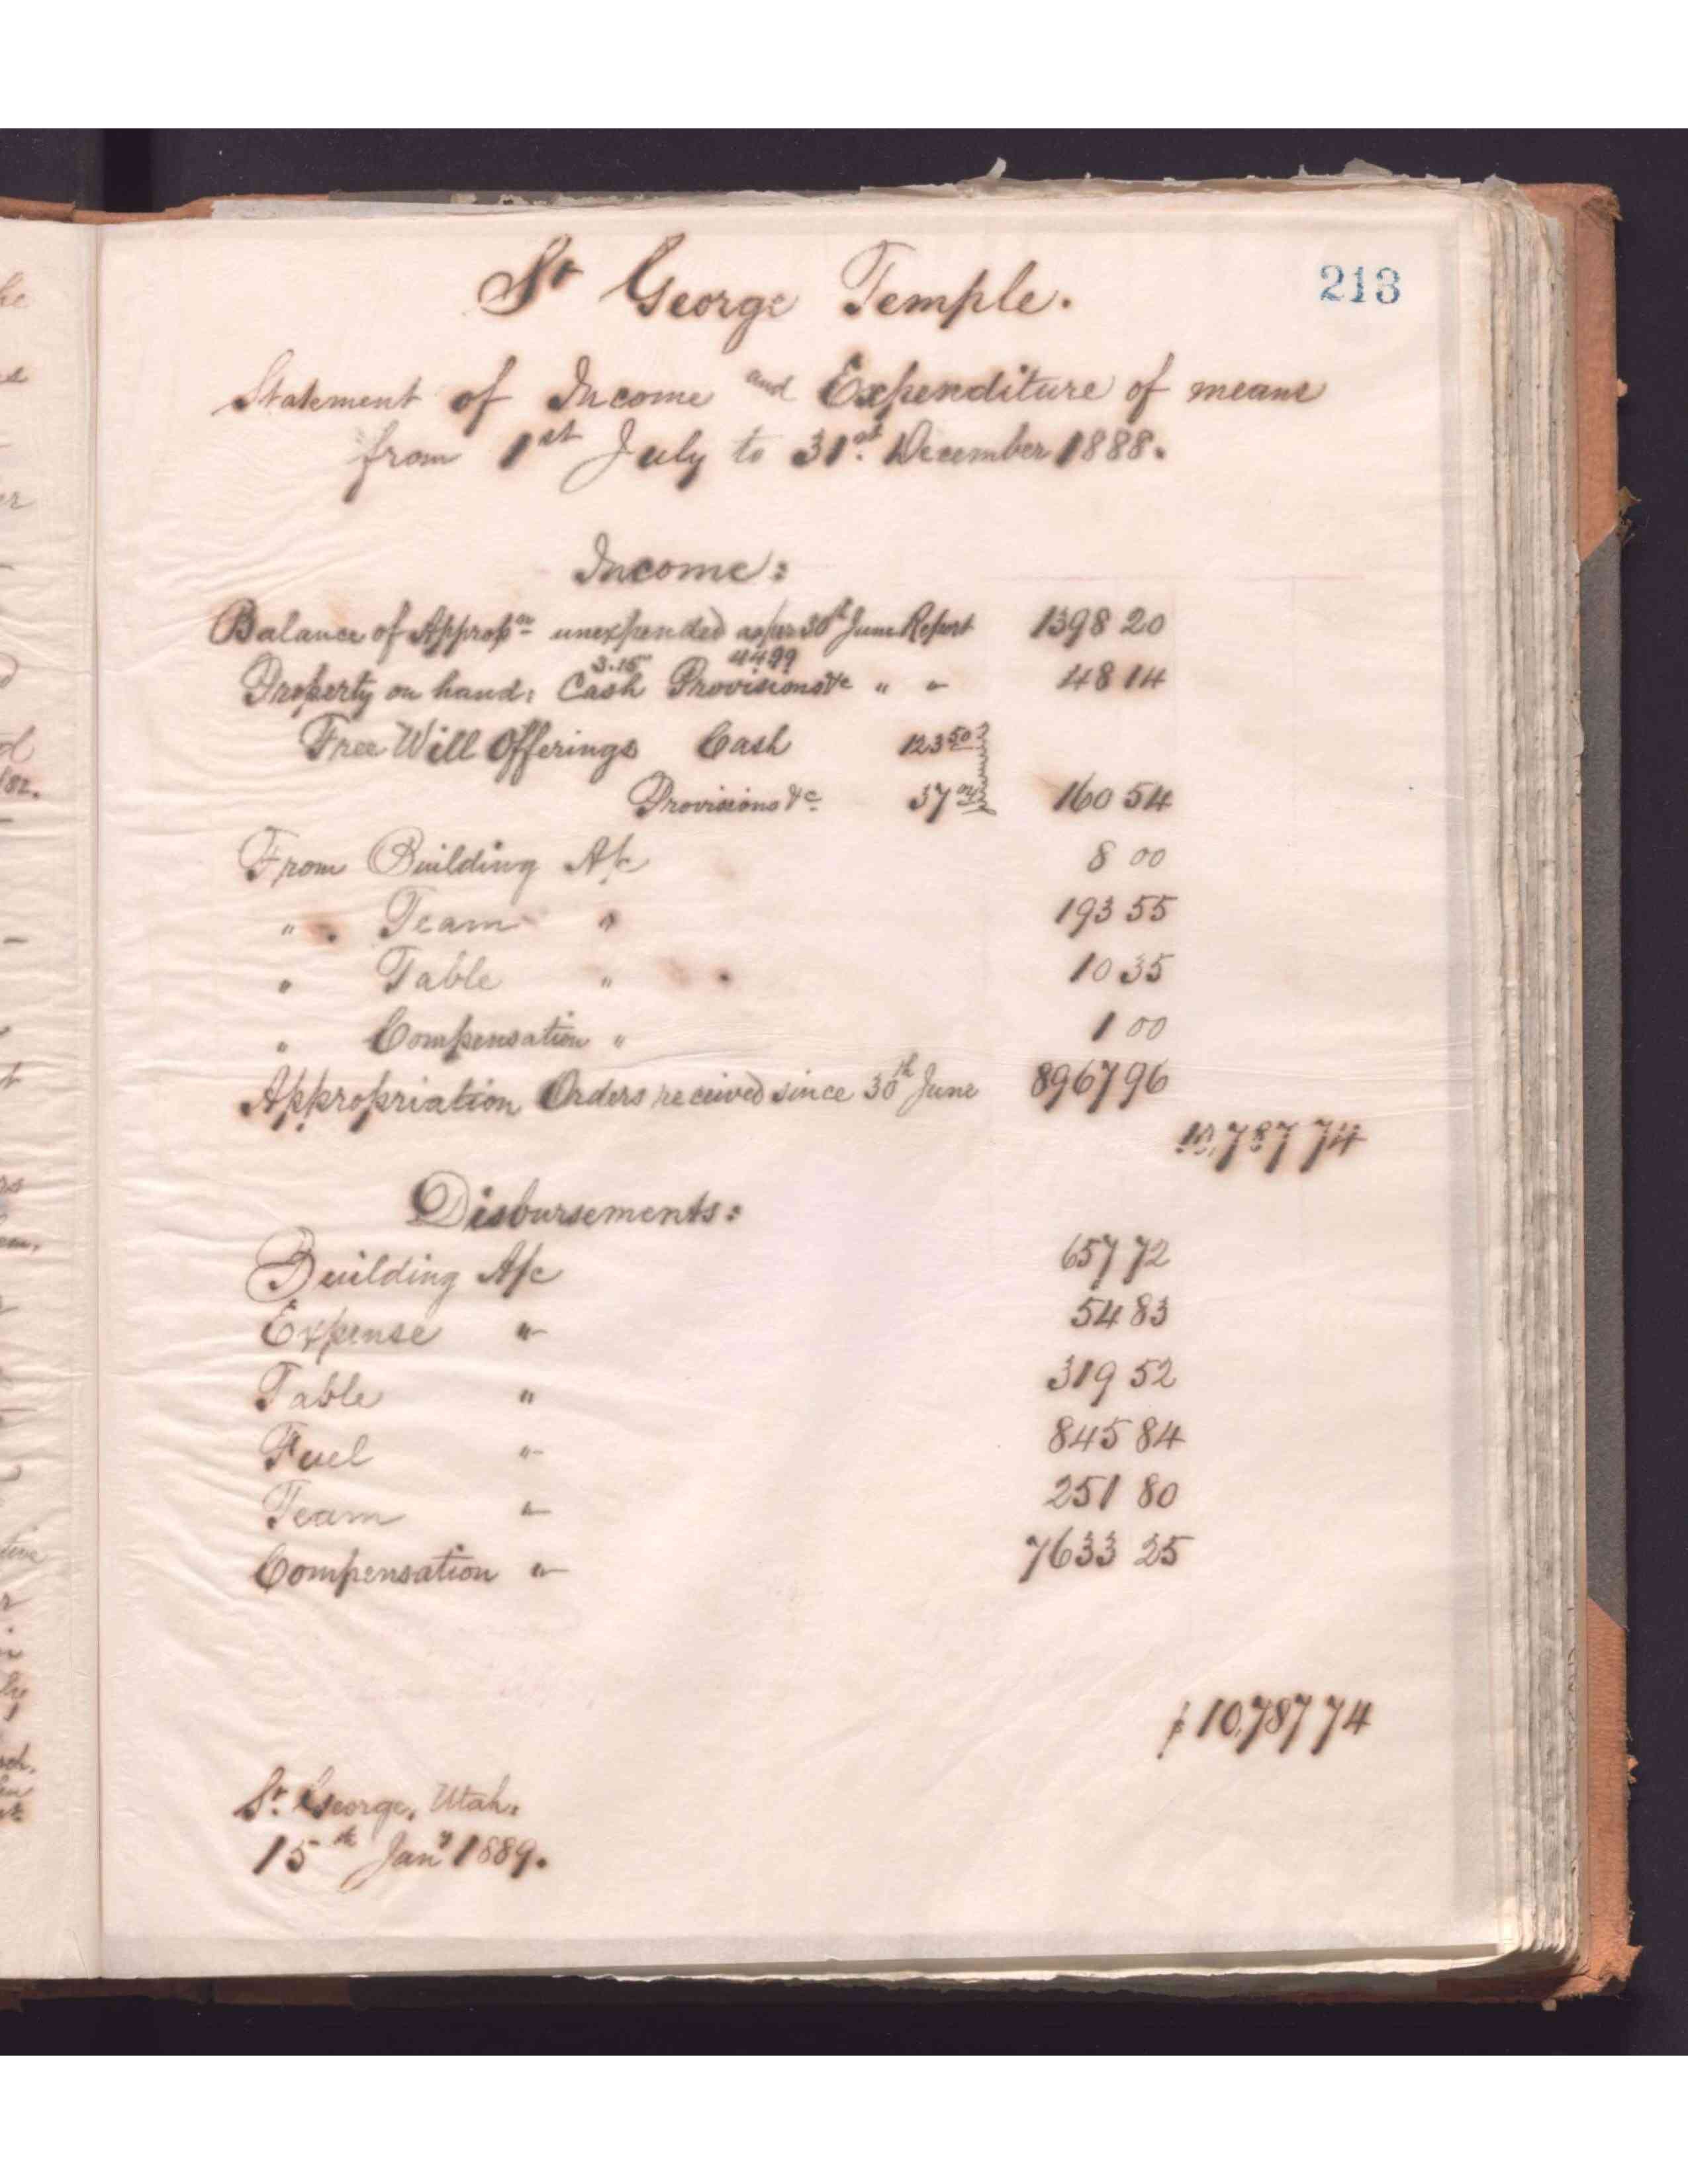 213
St George Temple.
Statement of Income and Expenditure of means
from 1st July to 31st. December 1888.
Income:
Balance of Appropon unexpended as per 30th June Report 1398 20
3.15 44 99
Property on hand: Cash Provisions &c " " 48 14
Free Will Offerings Cash 123 50
Provisions &c 37 04 160 54
From Building A/c 8 00
" Team " 193 55
" Table " 10 35
" Compensation " 1 00
Appropriation Orders received since 30th June 8967 96
10,787 74
Disbursements:
Building A/c 657 72
Expense " 54 83
Table " 319 52
Fuel " 845 84
Team " 251 80
Compensation " 7633 25
$ 10,787 74
St. George, Utah.
15th Jany 1889.